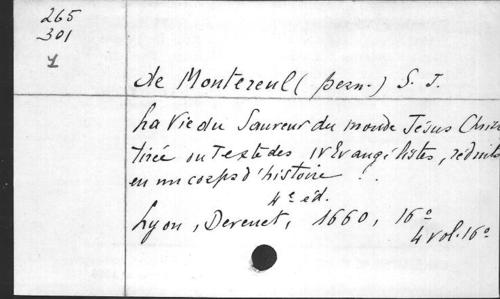 265
301
1
de Montereul (bern.) S. J.
La Vie du Sauveur du monde Jésus Christ
tirée du Texte des IV Evangélistes, réduits
en un corps d'histoire !..
4e éd.
Lyon, Derenet, 1660, 16o
4 vol. 16o